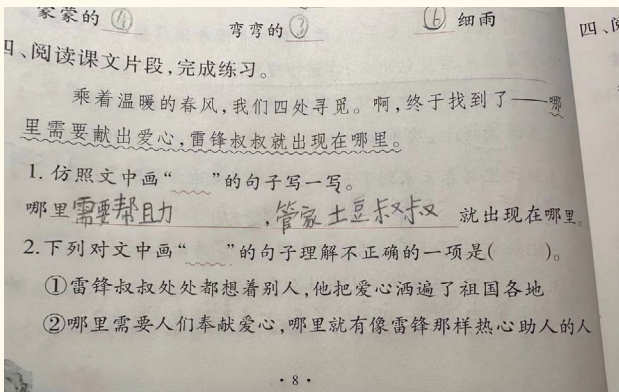 蒙蒙的④ 弯弯的③ ⑥细雨
四、阅读课文片段,完成练习。
乘着温暖的春风,我们四处寻觅。啊,终于找到了——哪
里需要献出爱心,雷锋叔叔就出现在哪里。
1. 仿照文中画“ ”的句子写一写。
哪里需要帮助,管家土豆叔叔就出现在哪里。
2. 下列对文中画“ ”的句子理解不正确的一项是( )。
①雷锋叔叔处处都想着别人,他把爱心洒遍了祖国各地
②哪里需要人们奉献爱心,哪里就有像雷锋那样热心助人的人
·8·
四、